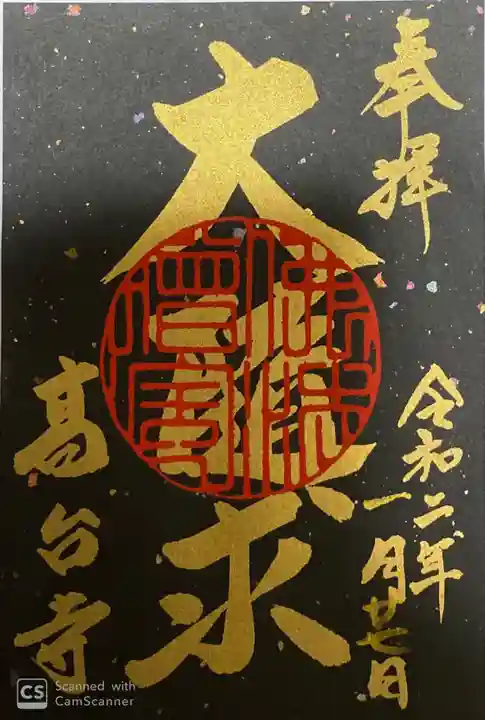 奉拝
令和二年
一月廿七日
大
求
佛法
僧寶
高台寺
CS
Scanned with
CamScanner